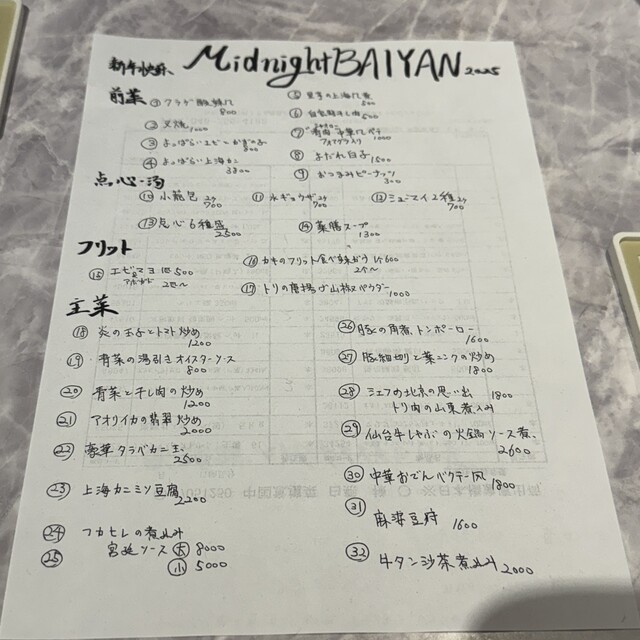 新年快楽、 Midnight BAIYAN 2025
前菜
① クラゲ 酸辣 800
② 叉焼 1000
③ よっぱらいエビ 800
④ よっぱらい上海カニ 3300
500
⑥ 500
⑦ 中華パテ フォアグラ入り 1000
⑧ よだれ白子 1500
⑨ おつまみピーナッツ 300
点心・湯
⑩ 小籠包 2ケ 700
⑪ 水ギョウザ 2ケ 700
⑫ シューマイ2種 2ケ 700
⑬ 点心6種盛 2500
⑭ 薬膳スープ 1300
フリット
⑮ エビマヨ 1匹500 アボカド 2匹〜
⑯ カキのフリット 1ケ600 2ケ〜
⑰ トリの唐揚げ山椒パウダー 1000
主菜
⑱ 炎の玉子とトマト炒め 1200
⑲ 青菜の湯引きオイスターソース 800
⑳ 青菜と干し肉の炒め 1200
㉑ アオリイカの翡翠炒め 2000
㉒ 豪華タラバカニ玉 2500
㉓ 上海カニミソ豆腐 2200
㉔ フカヒレの煮込み
㉕ 宮廷ソース 大 8000
小 5000
㉖ 豚の角煮 トンポーロー 1600
㉗ 豚細切りと葉ニンニクの炒め 1800
㉘ シェフの北京の思い出 1800
トリ肉の山東煮込み
㉙ 仙台牛しゃぶの火鍋ソース煮 2600
㉚ 中華おでんバクテー風 1800
㉛ 麻婆豆腐 1600
㉜ 牛タン沙茶煮込み 2000